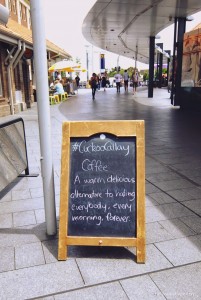 #CuckooCallay
Coffee
A warm, delicious
alternative to hating
everybody, every
morning, forever.